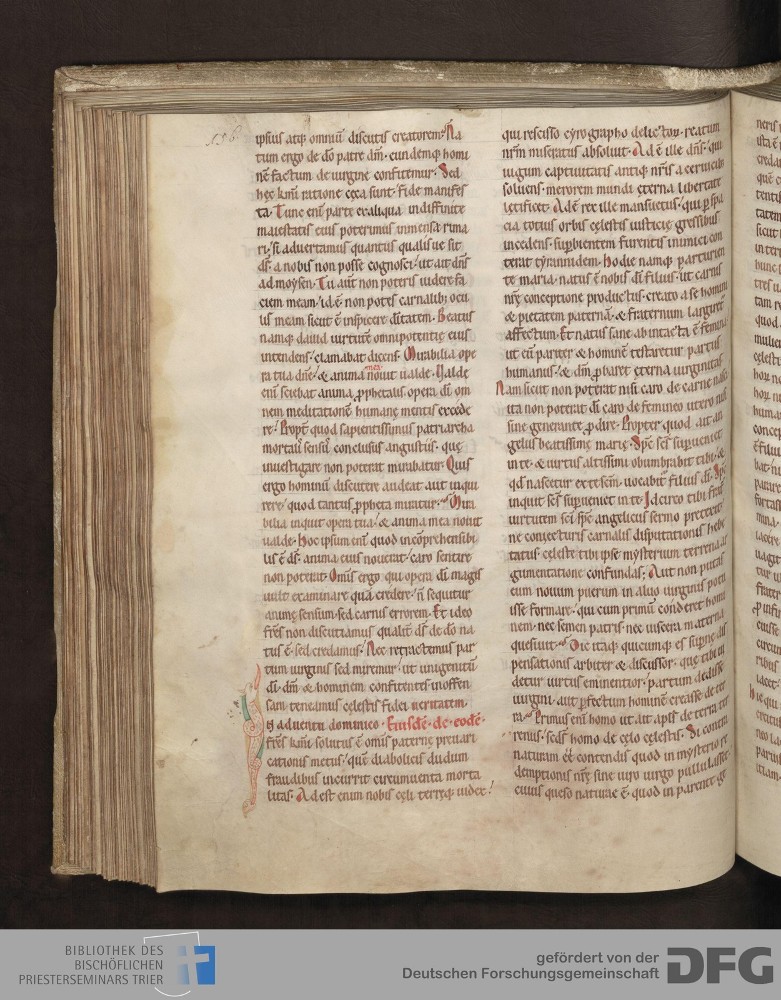 136
ipsius atq; omniū discutis creatorem. Na
tum ergo de dō patre dm̄. eundemq; homi
nē factum de uirgine confitemur. Sed
hęc kmī ratione cęca sunt. fide manifes
ta. Tunc enī parte ex aliqua indiffinite
maiestatis eius poterimus inmensa rima
ri. si aduertamus quantus qualisue sit
ds̄. a nobis non posse cognosci. ut ait dn̄s
ad moysen. Tu aut̄ non poteris uidere fa
ciem meam. id ē non potes carnalib; ocu
lis meam sicut ē inspicere diītatem. Beatus
namq; dauid uirtutē omnipotentię eius
intendens. clamabat dicens. Mirabilia ope
ra tua dn̄e. & anima mea nouit ualde. Ualde
enī sciebat anima ꝓphetalis opera dī om
nem meditationē humanę mentis excede
re. Propt̄ quod sapientissimus patriarcha
mortali sensu conclusus angustiis. quę
inuestigare non poterat mirabatur. Quis
ergo hominū discutere audeat aut inqui
rere. quod tantus ꝓpheta miratur. Mira
bilia inquit opera tua. & anima mea nouit
ualde. Hoc ipsum enī quod incōprehensibi
lis ē ds̄. anima eius nouerat. caro sentire
non poterat. Om̄is ergo qui opera dī magis
uult examinare quā credere. n̄ sequitur
animę sensum. sed carnis errorem. Et ideo
frēs non discutiamus qualit̄ ds̄ de dō na
tus ē. sed credamus. Nec retractemus par
tum uirginis sed miremur. ut unigenitū
dī. dm̄ & hominem confitentes inoffen
sam teneamus cęlestis fidei ueritatem.
In aduentu dominico. Eiusdē. de. eodē.
frēs kmī solutus ē om̄is paternę preuari
cationis metus. quē diabolicis dudum
fraudibus incurrit circumuenta morta
litas. Adest enim nobis cęli terręq; iudex.
qui rescisso cyrographo delictoꝝ. reatum
nrm̄ miseratus absoluit. Ad ē ille dn̄s. qui
iugum captiuitatis antiq; nrīs a ceruicib;
soluens. merorem mundi ęterna libertate
lętificet. Ad ē rex ille mansuetus. qui ꝑ spa
cia totius orbis cęlestis iusticię gressibus
incedens. suꝑbientem furentis inimici con
terat tyrannidem. Hodie namq; parturien
te maria. natus ē nobis dī filius. ut carnis
nrę conceptione productus. creato a se homini
& pietatem paternā. & fraternum largiret̄
affectum. Et natus sane ab intacta ē femina
ut eū pariter & hominē testaretur partus
humanus. & dm̄ ꝓbaret ęterna uirginitas
Nam sicut non poterat nisi caro de carne nasci
ita non poterat dī caro de femineo utero nisi
sine generante ꝓdire. Propter quod ait an
gelus beatissimę marię. Sp̄c scs̄ suꝑueniet
in te. & uirtus altissimi obumbrabit tibi. &
qd̄ nascetur ex te scm̄. uocabit̄ filius dī. Sp̄c
inquit scs̄ suꝑueniet in te. Idcirco tibi frat̄
uirtutem scī sp̄c angelicus sermo pretexit.
ne coniecturis carnalis disputationis hebe
tatus. cęleste tibi ipse mysterium terrena ar
gumentatione confundas. Aut non putas
eum nouum puerum in aluo uirginis potu
isse formare. qui cum primū conderet homi
nem. nec semen patris. nec uiscera materna
quesiuit. Dic itaq; quicumq; es suꝑnę dis
pensationis arbiter & discussor. quę tibi ui
detur uirtus eminentior. partum dedisse
uirgini. aut ꝑfectum hominē creasse de ter
ra. Primus enī homo ut ait apl̄s de terra ter
renus. sed's homo de cęlo cęlestis. Si contra
naturam eē contendis quod in mysterio re
demptionis nrę sine uiro uirgo pullulasset.
cuius queso naturae ē. quod in parente ge
BIBLIOTHEK DES
BISCHÖFLICHEN
PRIESTERSEMINARS TRIER
gefördert von der
Deutschen Forschungsgemeinschaft
DFG